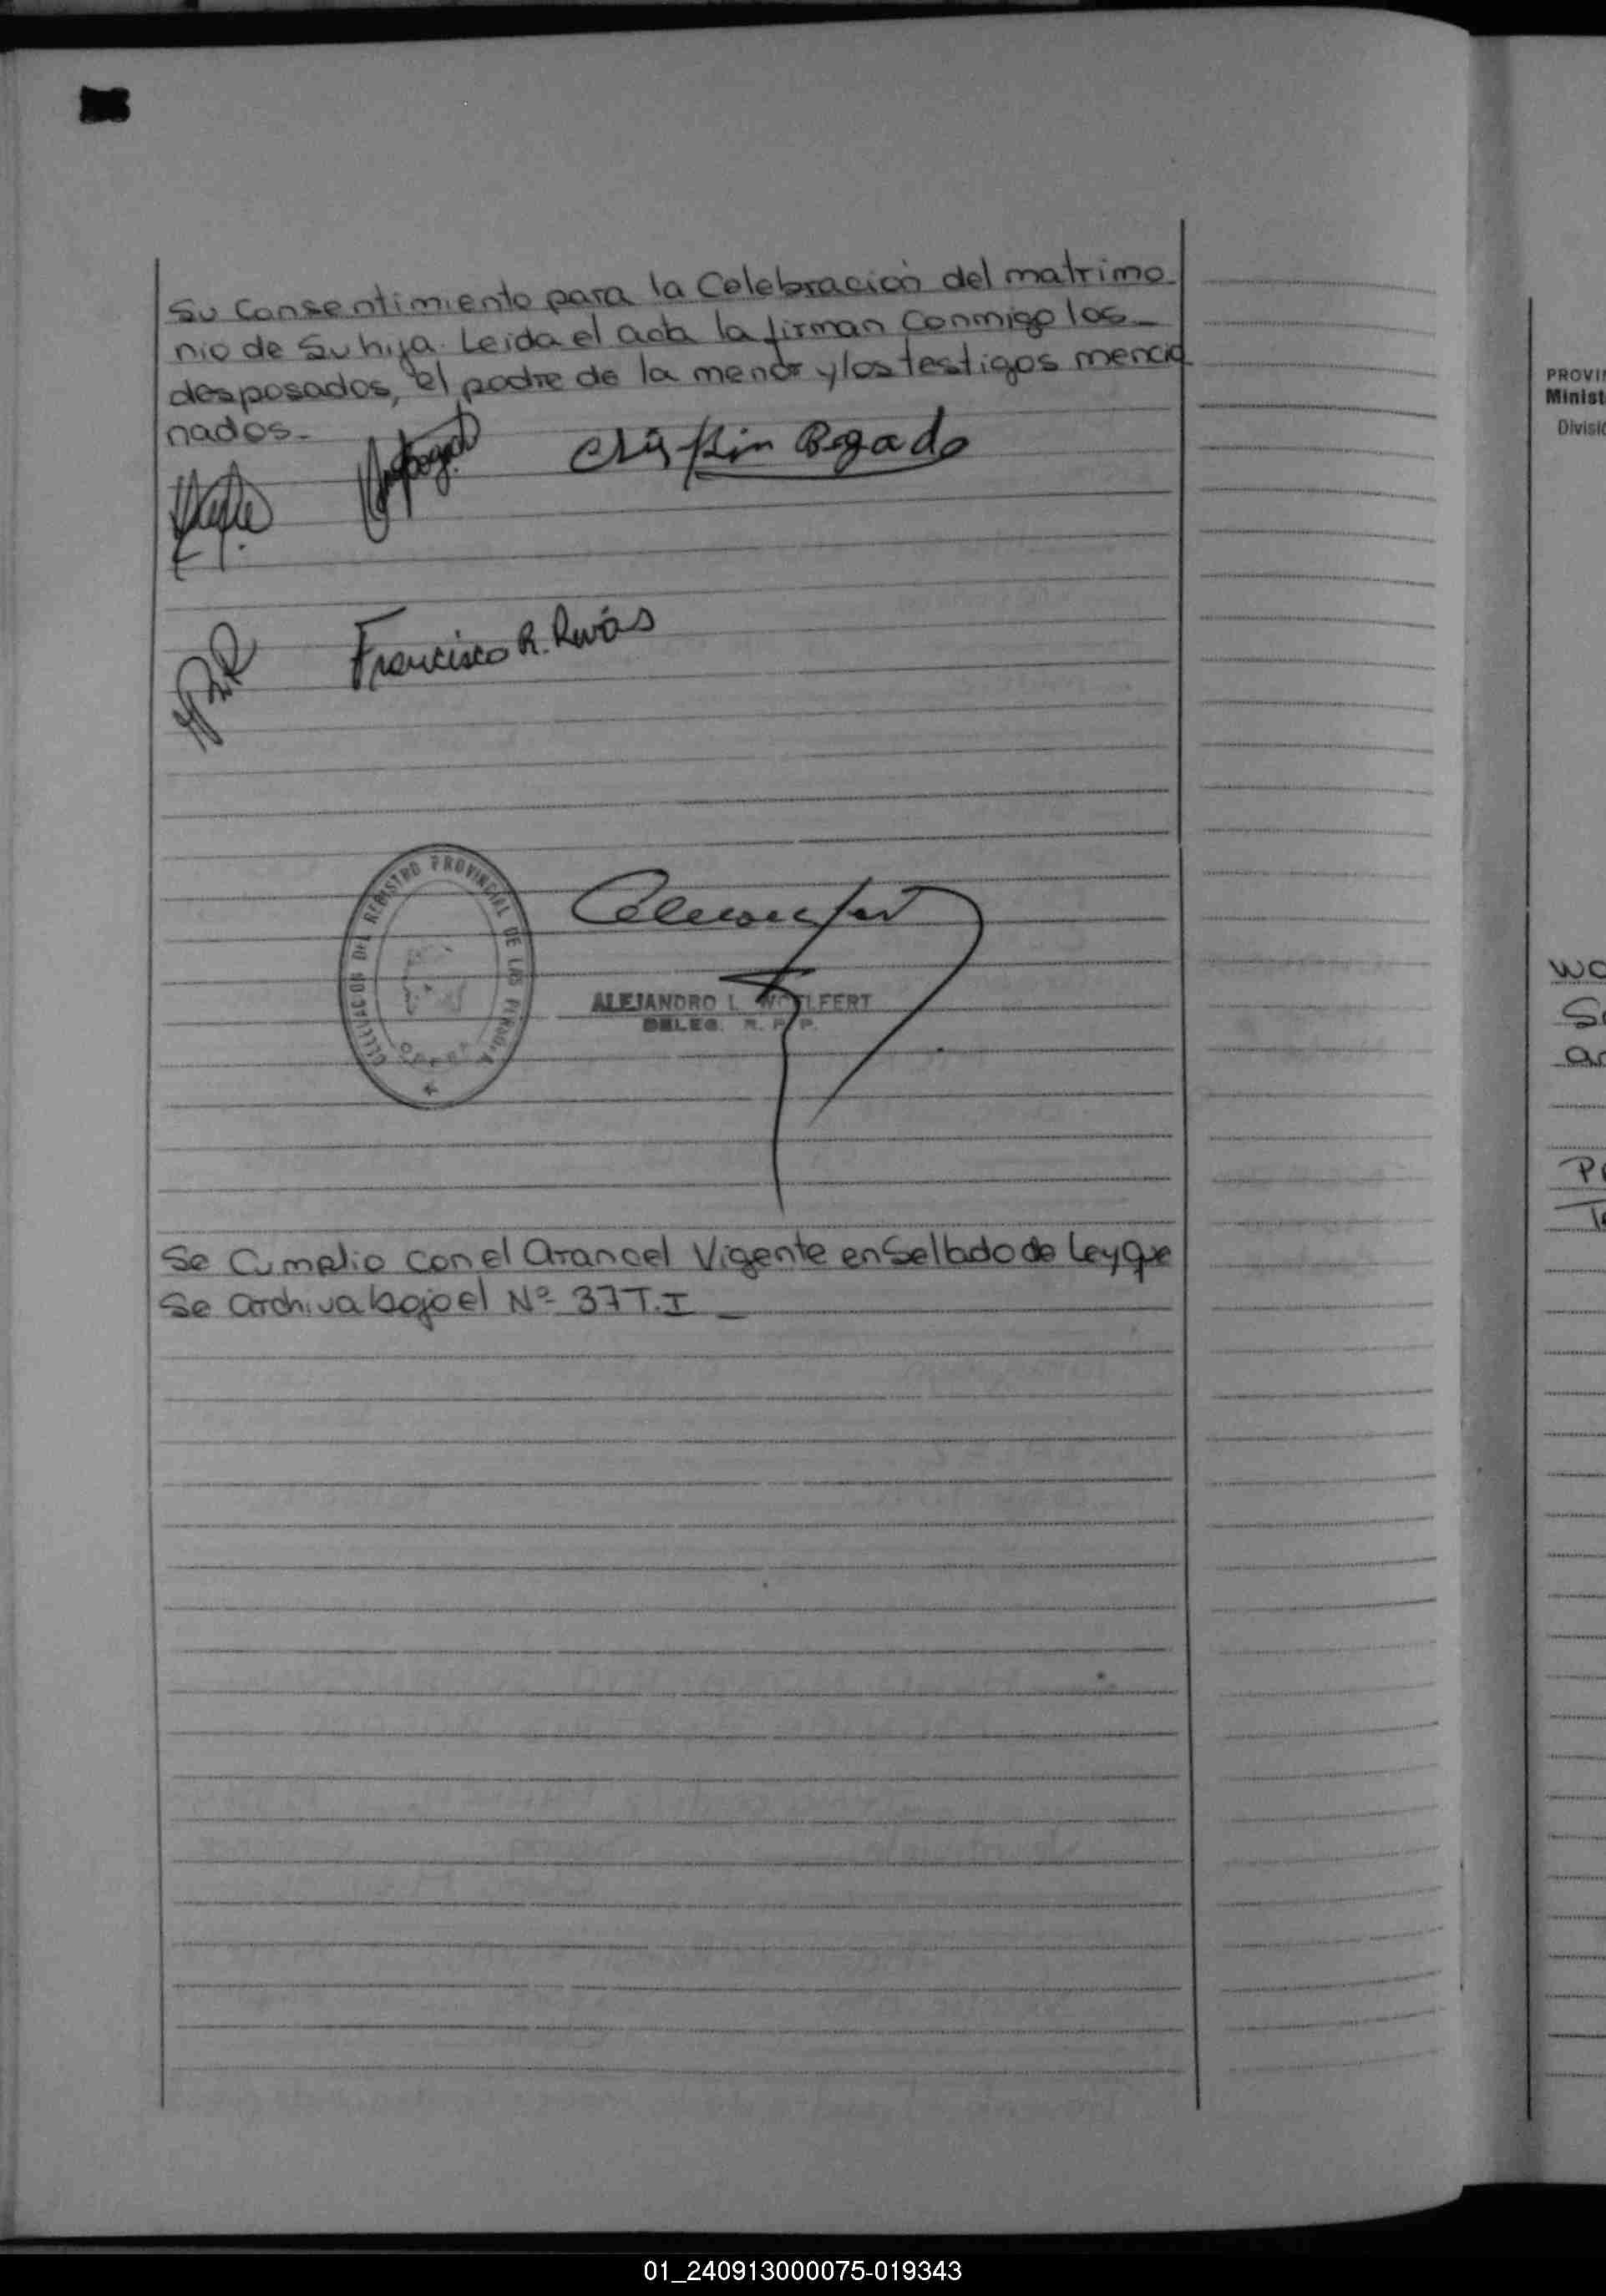 Su Consentimiento para la Celebración del matrimo
nio de Su hija. Leida el acta la firman Conmigo los
desposados, el padre de la menor y los testigos mencio
nados.
Crispin Bogado
Francisco R. Rivas
DEL REGISTRO PROVINCIAL DE LAS PERSONAS
ALEJANDRO L. WOLFERT
DELEG. R. P. P.
Se Cumplio con el Arancel Vigente en Sellado de Ley que
Se archiva bajo el Nº 37 T.I
PROVIN
Minist
Divisió
01_240913000075-019343